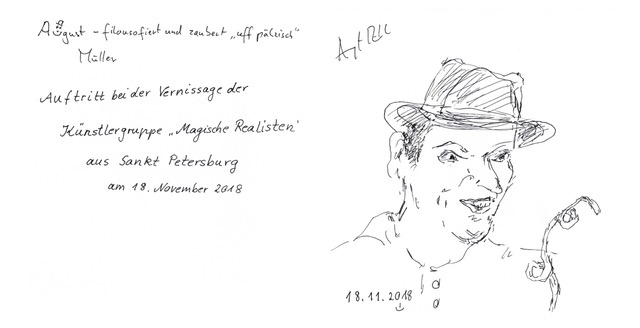 August - filousofiert und zaubert „uff pälzisch“
Müller
Auftritt bei der Vernissage der
Künstlergruppe „Magische Realisten“
aus Sankt Petersburg
am 18. November 2018
18.11.2018